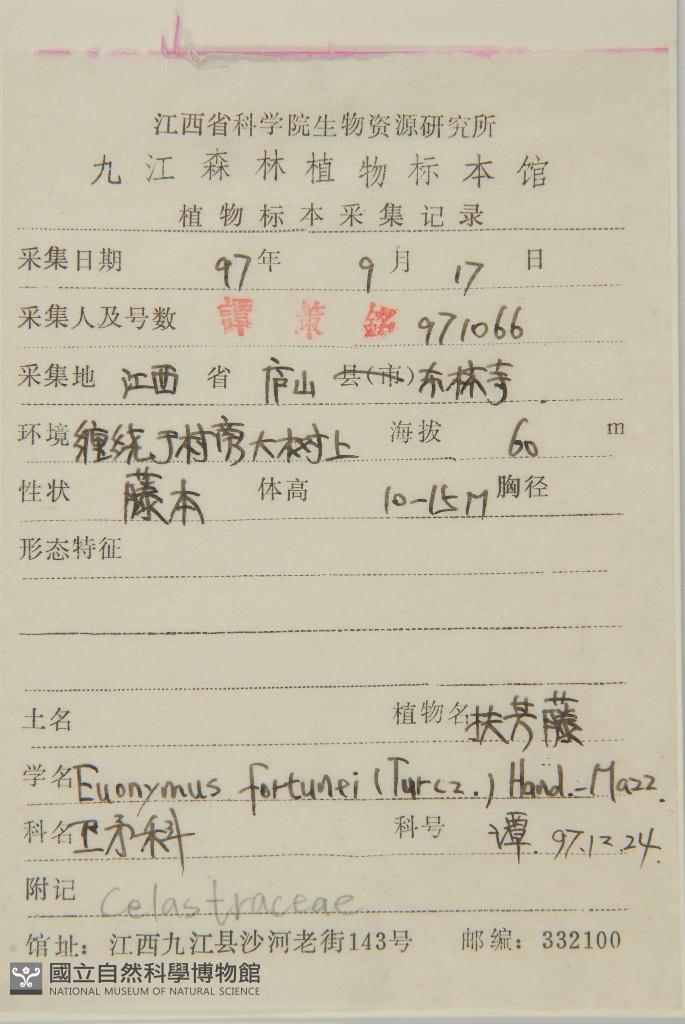 江西省科学院生物资源研究所
九江森林植物标本馆
植物标本采集记录
采集日期 97年 9月 17日
采集人及号数 譚策銘 971066
采集地 江西 省 庐山 县(市)东林寺
环境 缠绕于村旁大树上 海拔 60 m
性状 藤本 体高 10-15M 胸径
形态特征
土名 植物名 扶芳藤
学名 Euonymus fortunei (Turcz.) Hand.-Mazz.
科名 卫矛科 科号 谭.97.12.24.
附记 Celastraceae
馆址: 江西九江县沙河老街143号 邮编: 332100
國立自然科學博物館
NATIONAL MUSEUM OF NATURAL SCIENCE